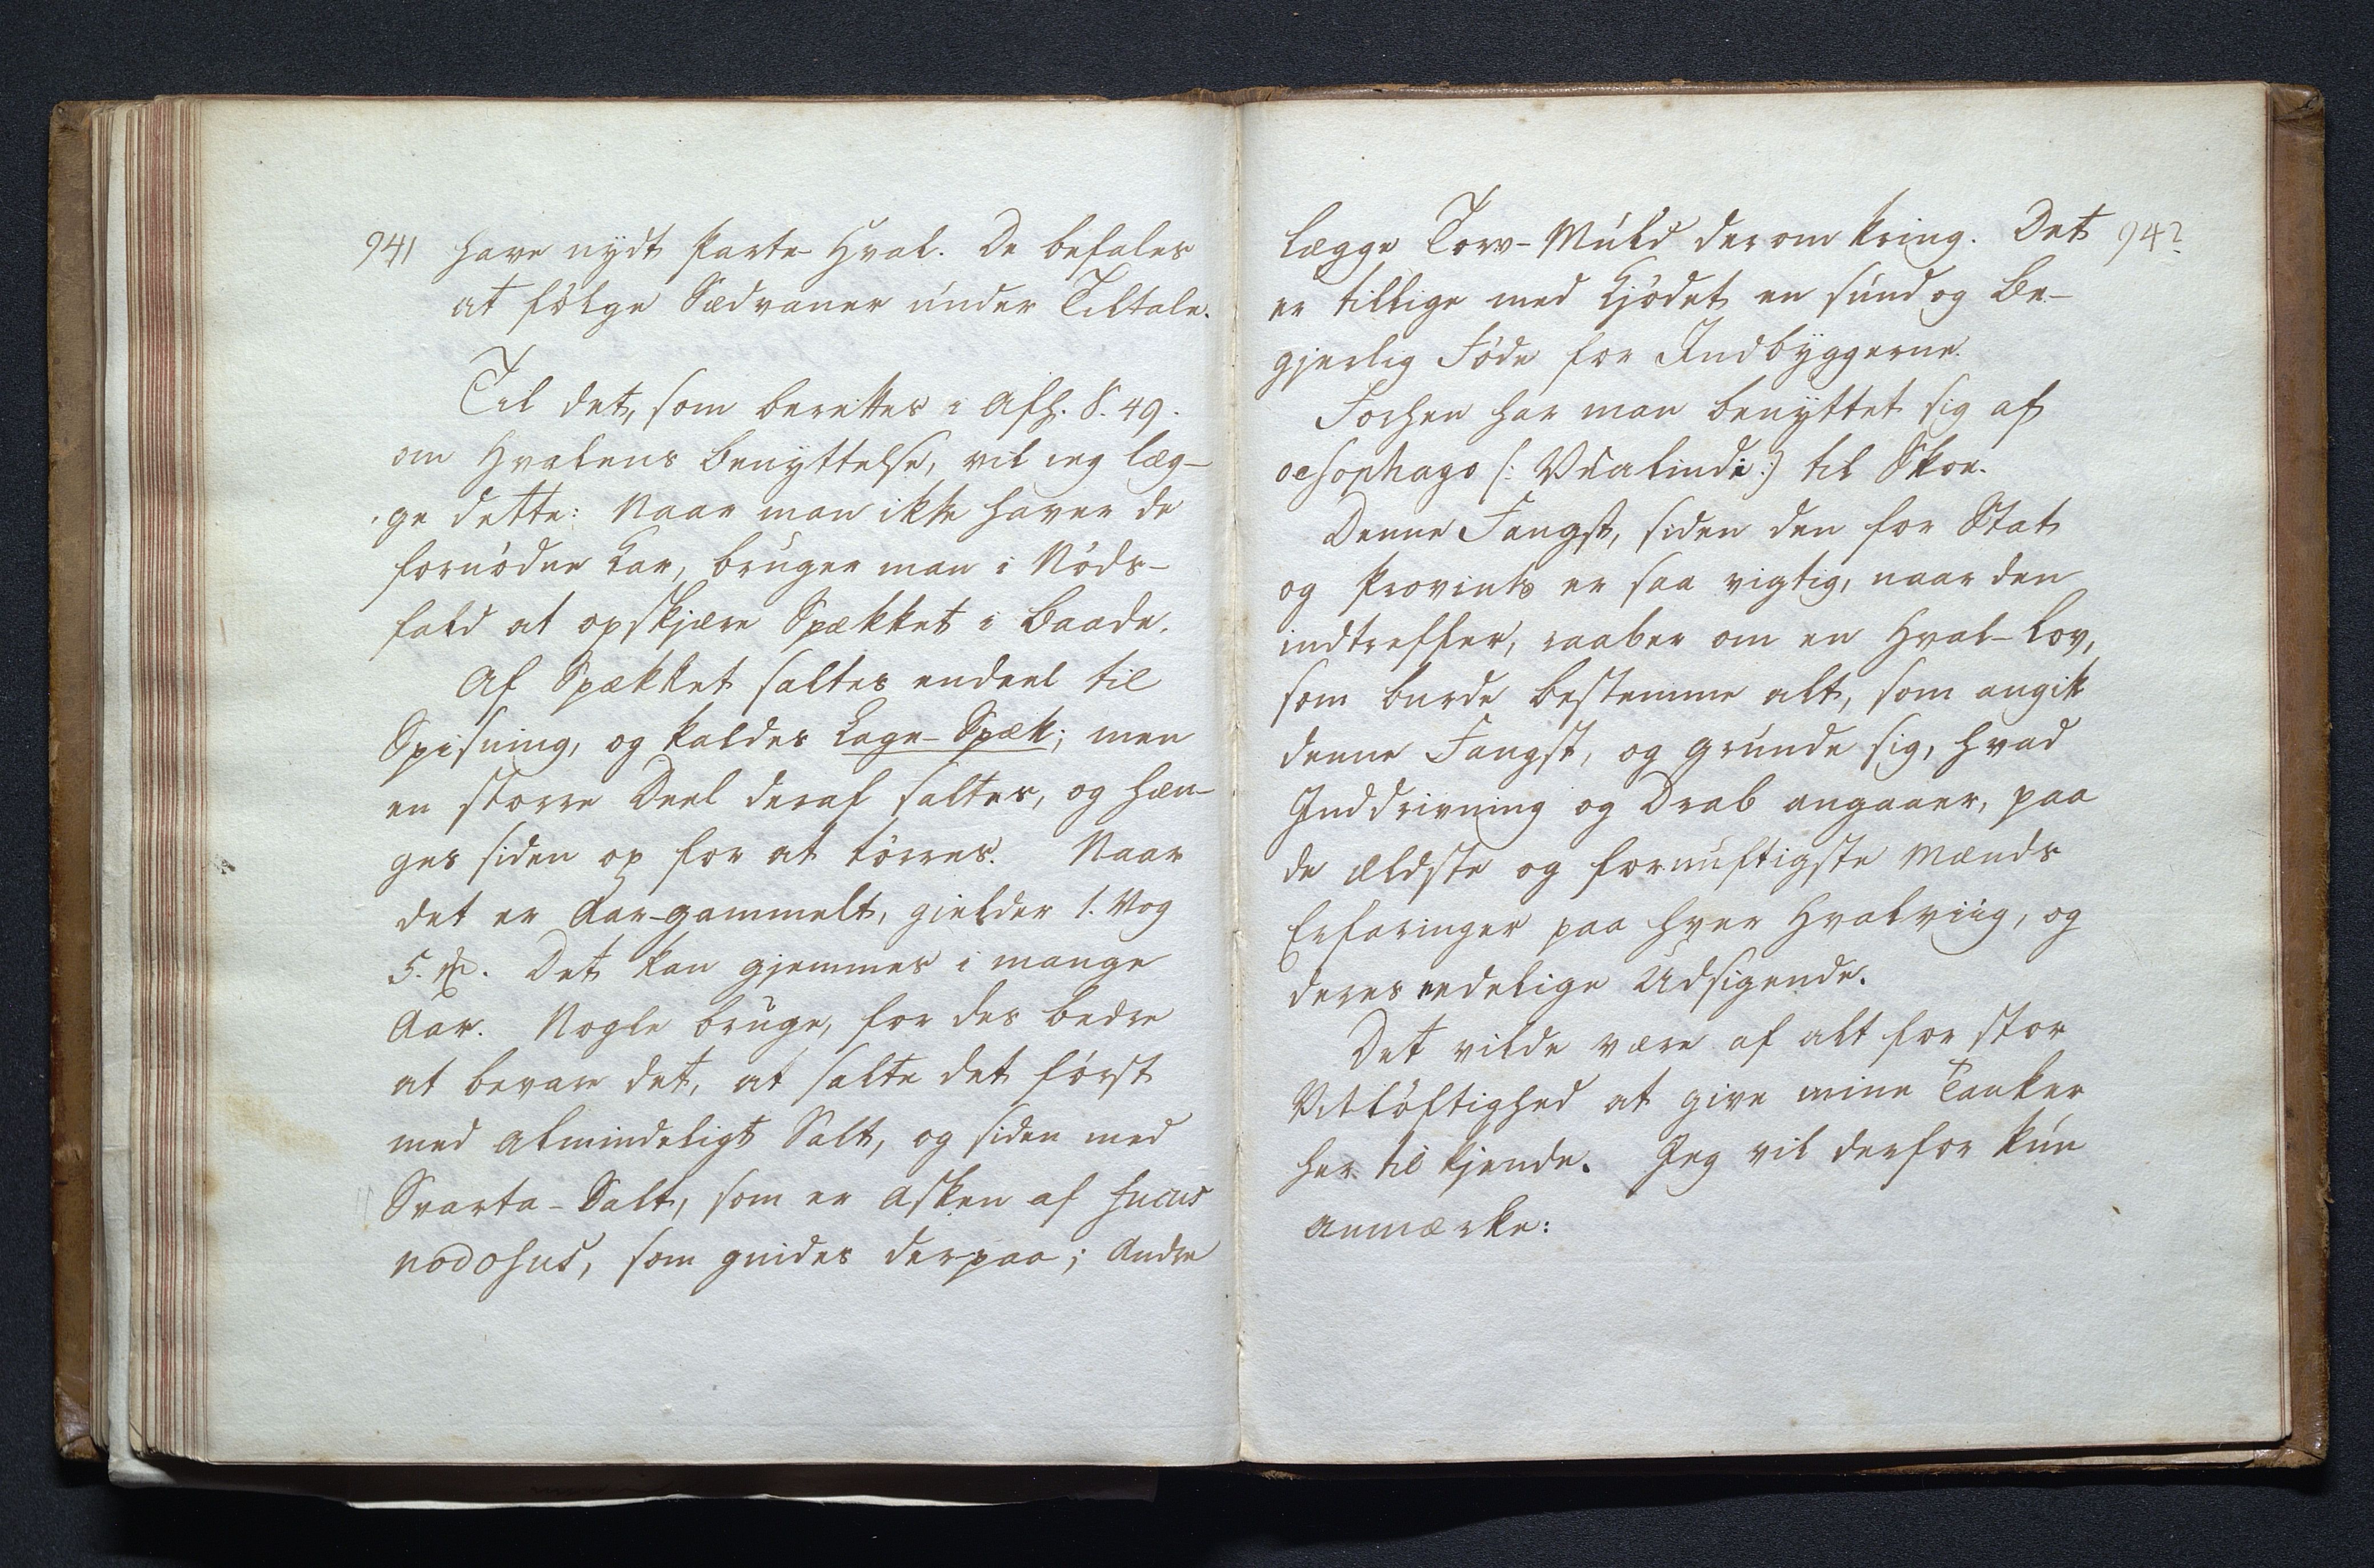 941 have nydt Parte-Hval. De befales
at følge Sædvaner under Tiltale.
Til det, som berettes i Afh. S. 49.
om Hvalens Benyttelse, vil ieg læg-
ge dette: Naar man ikke haver de
fornødne Kar, bruger man i Nøds-
fald at opskjære Spækket i Baade.
Af Spækket saltes endeel til
Spisning, og kaldes Lage-Spæk; men
en større Deel deraf saltes, og hæn-
ges siden op for at tørres. Naar
det er Aar-gammelt, gielder 1. Vog
5. Det kan gjemmes i mange
Aar. Nogle bruge, for des bedre
at bevare det, at salte det først
med almindeligt Salt, og siden med
Svarta-Salt, som er Asken af fucus
nodosus, som gnides derpaa; Andre
lægge Torv-Muld deromkring. Det 942
er tillige med Kjødet en sund og Be-
gjerlig Føde for Indbyggerne.
Forhen har man benyttet sig af
oesophago (: Vealinde:) til Skoe.
Denne Fangst, siden den for Stat
og Provints er saa vigtig, naar den
indtreffer, raaber om en Hval-Lov,
som burde bestemme alt, som angik
denne Fangst, og grunde sig, hvad
Inddrivning og Drab angaaer, paa
de ældste og fornuftigste Mænds
Erfaringer paa hver Hvalviig, og
deres eedelige Udsigende.
Det vilde være af alt for stor
Vitløftighed at give mine Tanker
her til kjende. Jeg vil derfor kun
anmærke: